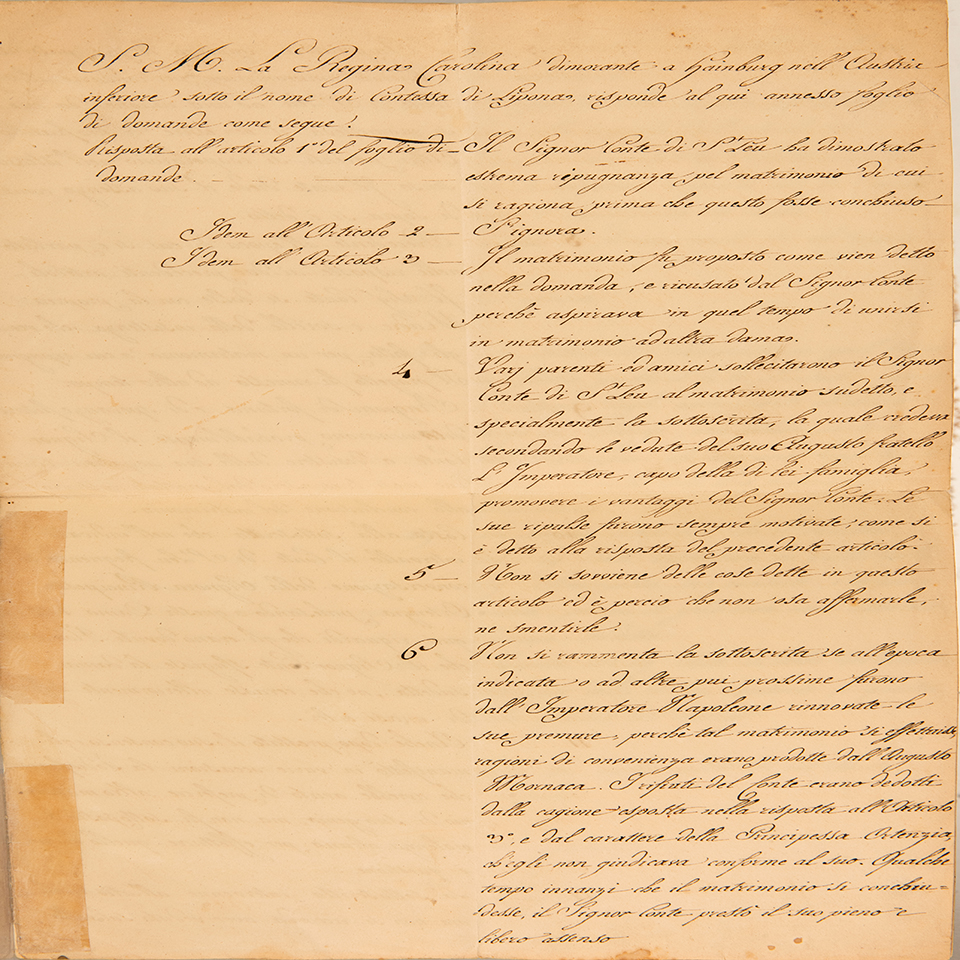 S. M. La Regina Carolina dimorante a Hainburg nell'Austria
inferiore sotto il nome di Contessa di Lipona, risponde al qui annesso foglio
di domande come segue.
Risposta all'articolo 1.° del foglio di
domande.
Il Signor Conte di S.t Leu ha dimostrato
estrema ripugnanza pel matrimonio di cui
si ragiona, prima che questo fosse conchiuso
Idem all'Articolo 2 —
S'ignora.
Idem all'Articolo 3 —
Il matrimonio fu proposto come vien detto
nella domanda, e ricusato dal Signor Conte
perchè aspirava in quel tempo di unirsi
in matrimonio ad altra dama.
4 —
Varj parenti ed amici sollecitarono il Signor
Conte di S.t Leu al matrimonio sudetto, e
specialmente la sottoscritta, la quale credeva
secondando le vedute del suo Augusto fratello
L'Imperatore, capo della di lei famiglia,
promovere i vantaggi del Signor Conte. Le
sue ripulse furono sempre motivate, come si
è detto alla risposta del precedente articolo.
5 —
Non si sovviene delle cose dette in questo
articolo ed è percio che non osa affermarle,
ne smentirle.
6
Non si rammenta la sottoscrita se all'epoca
indicata o ad altre piu prossime furono
dall'Imperatore Napoleone rinnovate le
sue premure, perchè tal matrimonio si effettuisse
ragioni di convenienza erano prodotte dall'Augusto
Mornaca. I rifiuti del Conte erano dedotti
dalla cagione esposta nella risposta all'Articolo
3.°, e dal carattere della Principessa Ortenzia,
ch'egli non giudicava conforme al suo. Qualche
tempo innanzi che il matrimonio si conchiu-
desse, il Signor Conte prestò il suo pieno e
libero assenso